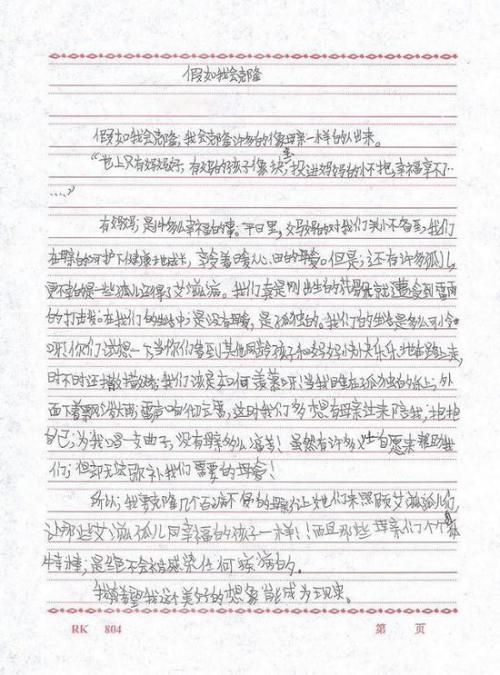 假如我会克隆
假如我会克隆，我会克隆许多的像母亲一样的人出来。
“世上只有妈妈好，有妈的孩子像块宝，投进妈妈的怀抱，幸福享不了
……”
有妈妈，是多么幸福的事。平日里，妈妈的对我们关心不备至，我们
在母亲的呵护下健康地成长，享受着暖人心田的母爱。但是，还有许多孤儿，
更不幸的是一些孤儿还得了艾滋病。我们真是刚出生的花骨朵就遭受到雷雨
的打击。在我们的生活中，是没有母爱，是孤独的。我们的生活是多么可怜
呀！你们试想一下当你们看到其他同龄孩子和妈妈快快乐乐地在路上走，
时不时还撒撒娇，我们该是如何羡慕呀！当我们坐在孤独的纸上，外
面下着飘泼大雨，雷声响彻云霄，这时我们多想有母亲过来陪我，抱抱
自己，为我唱一支曲子，没有母亲多么痛苦！虽然有许多自愿来帮助我
们，但却无法弥补我们需要的母爱！
所以，我要克隆几个百病不侵的母亲，让她们来照顾艾滋孤儿们，
让那些艾滋孤儿同幸福的孩子一样！而且那些母亲们个个身体
棒棒，是绝不会被感染任何疾病的。
我希望我这个美好的想象能成为现实。
RK 804 第 页